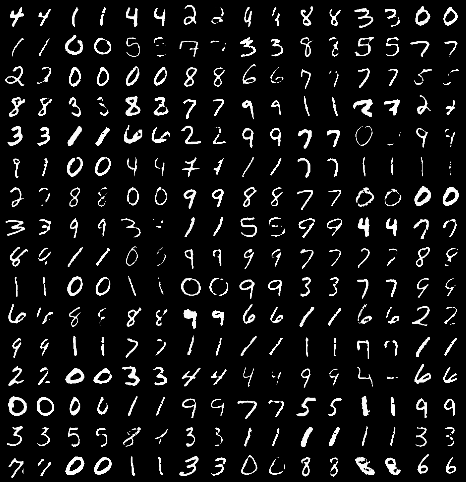 4 4 1 1 4 4 2 2 9 9 8 8 3 3 0 0
1 1 0 0 5 5 7 3 3 8 8 5 5 7 7
2 3 0 0 0 0 8 8 6 6 7 7 7 7 5 5
8 8 3 3 8 8 7 7 9 9 1 1 2 7 2
3 3 1 1 6 6 2 2 9 9 7 7 0 9 9
9 9 0 0 4 4 7 7 1 1 7 7 1 1 1 1
2 8 8 0 0 9 9 8 8 7 7 0 0 0 0
3 3 9 9 3 1 1 5 5 9 9 4 4 7 7
8 9 1 1 0 0 9 9 9 9 7 7 7 7 8 8
1 1 0 0 1 1 0 0 9 9 3 3 7 7 9 9
6 8 8 8 8 9 9 6 6 1 1 6 6 2 2
9 9 1 1 7 7 1 1 1 1 1 1 7 7 1 1
2 2 0 0 3 3 4 4 9 9 9 9 4 6 6
0 0 0 0 1 1 9 9 7 7 5 5 1 1 9 9
3 3 5 5 8 3 3 1 1 1 1 1 1 3 3
7 7 0 0 1 1 3 3 0 0 8 8 8 8 6 6